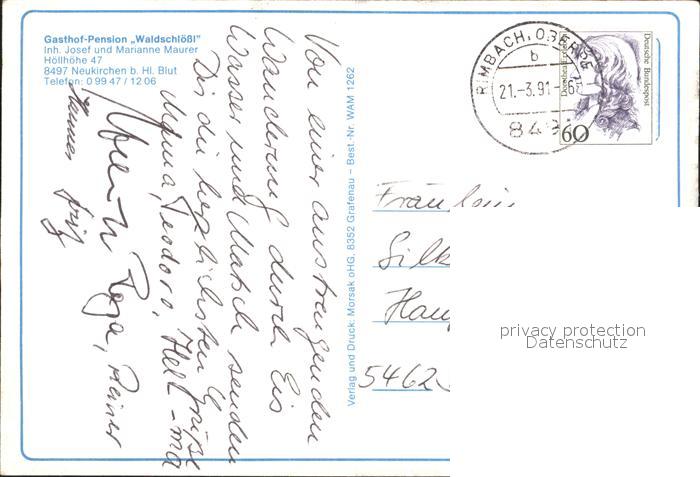 Gasthof-Pension „Waldschlößl"
Inh. Josef und Marianne Maurer
Höllhöhe 47
8497 Neukirchen b. Hl. Blut
Telefon: 0 99 47 / 12 06
Von einer anstrengenden
Wanderung durch Eis
Wasser und Matsch senden
Dir die herzlichsten Grüße
Teodoro,
Rainer
Verlag und Druck: Morsak oHG, 8352 Grafenau – Best.-Nr. WAM 1262
RIMBACH, OBERPF
b
21.-3.91
849
Deutsche Bundespost
60
Fräulein
Silk
Hau
5462
privacy protection
Datenschutz